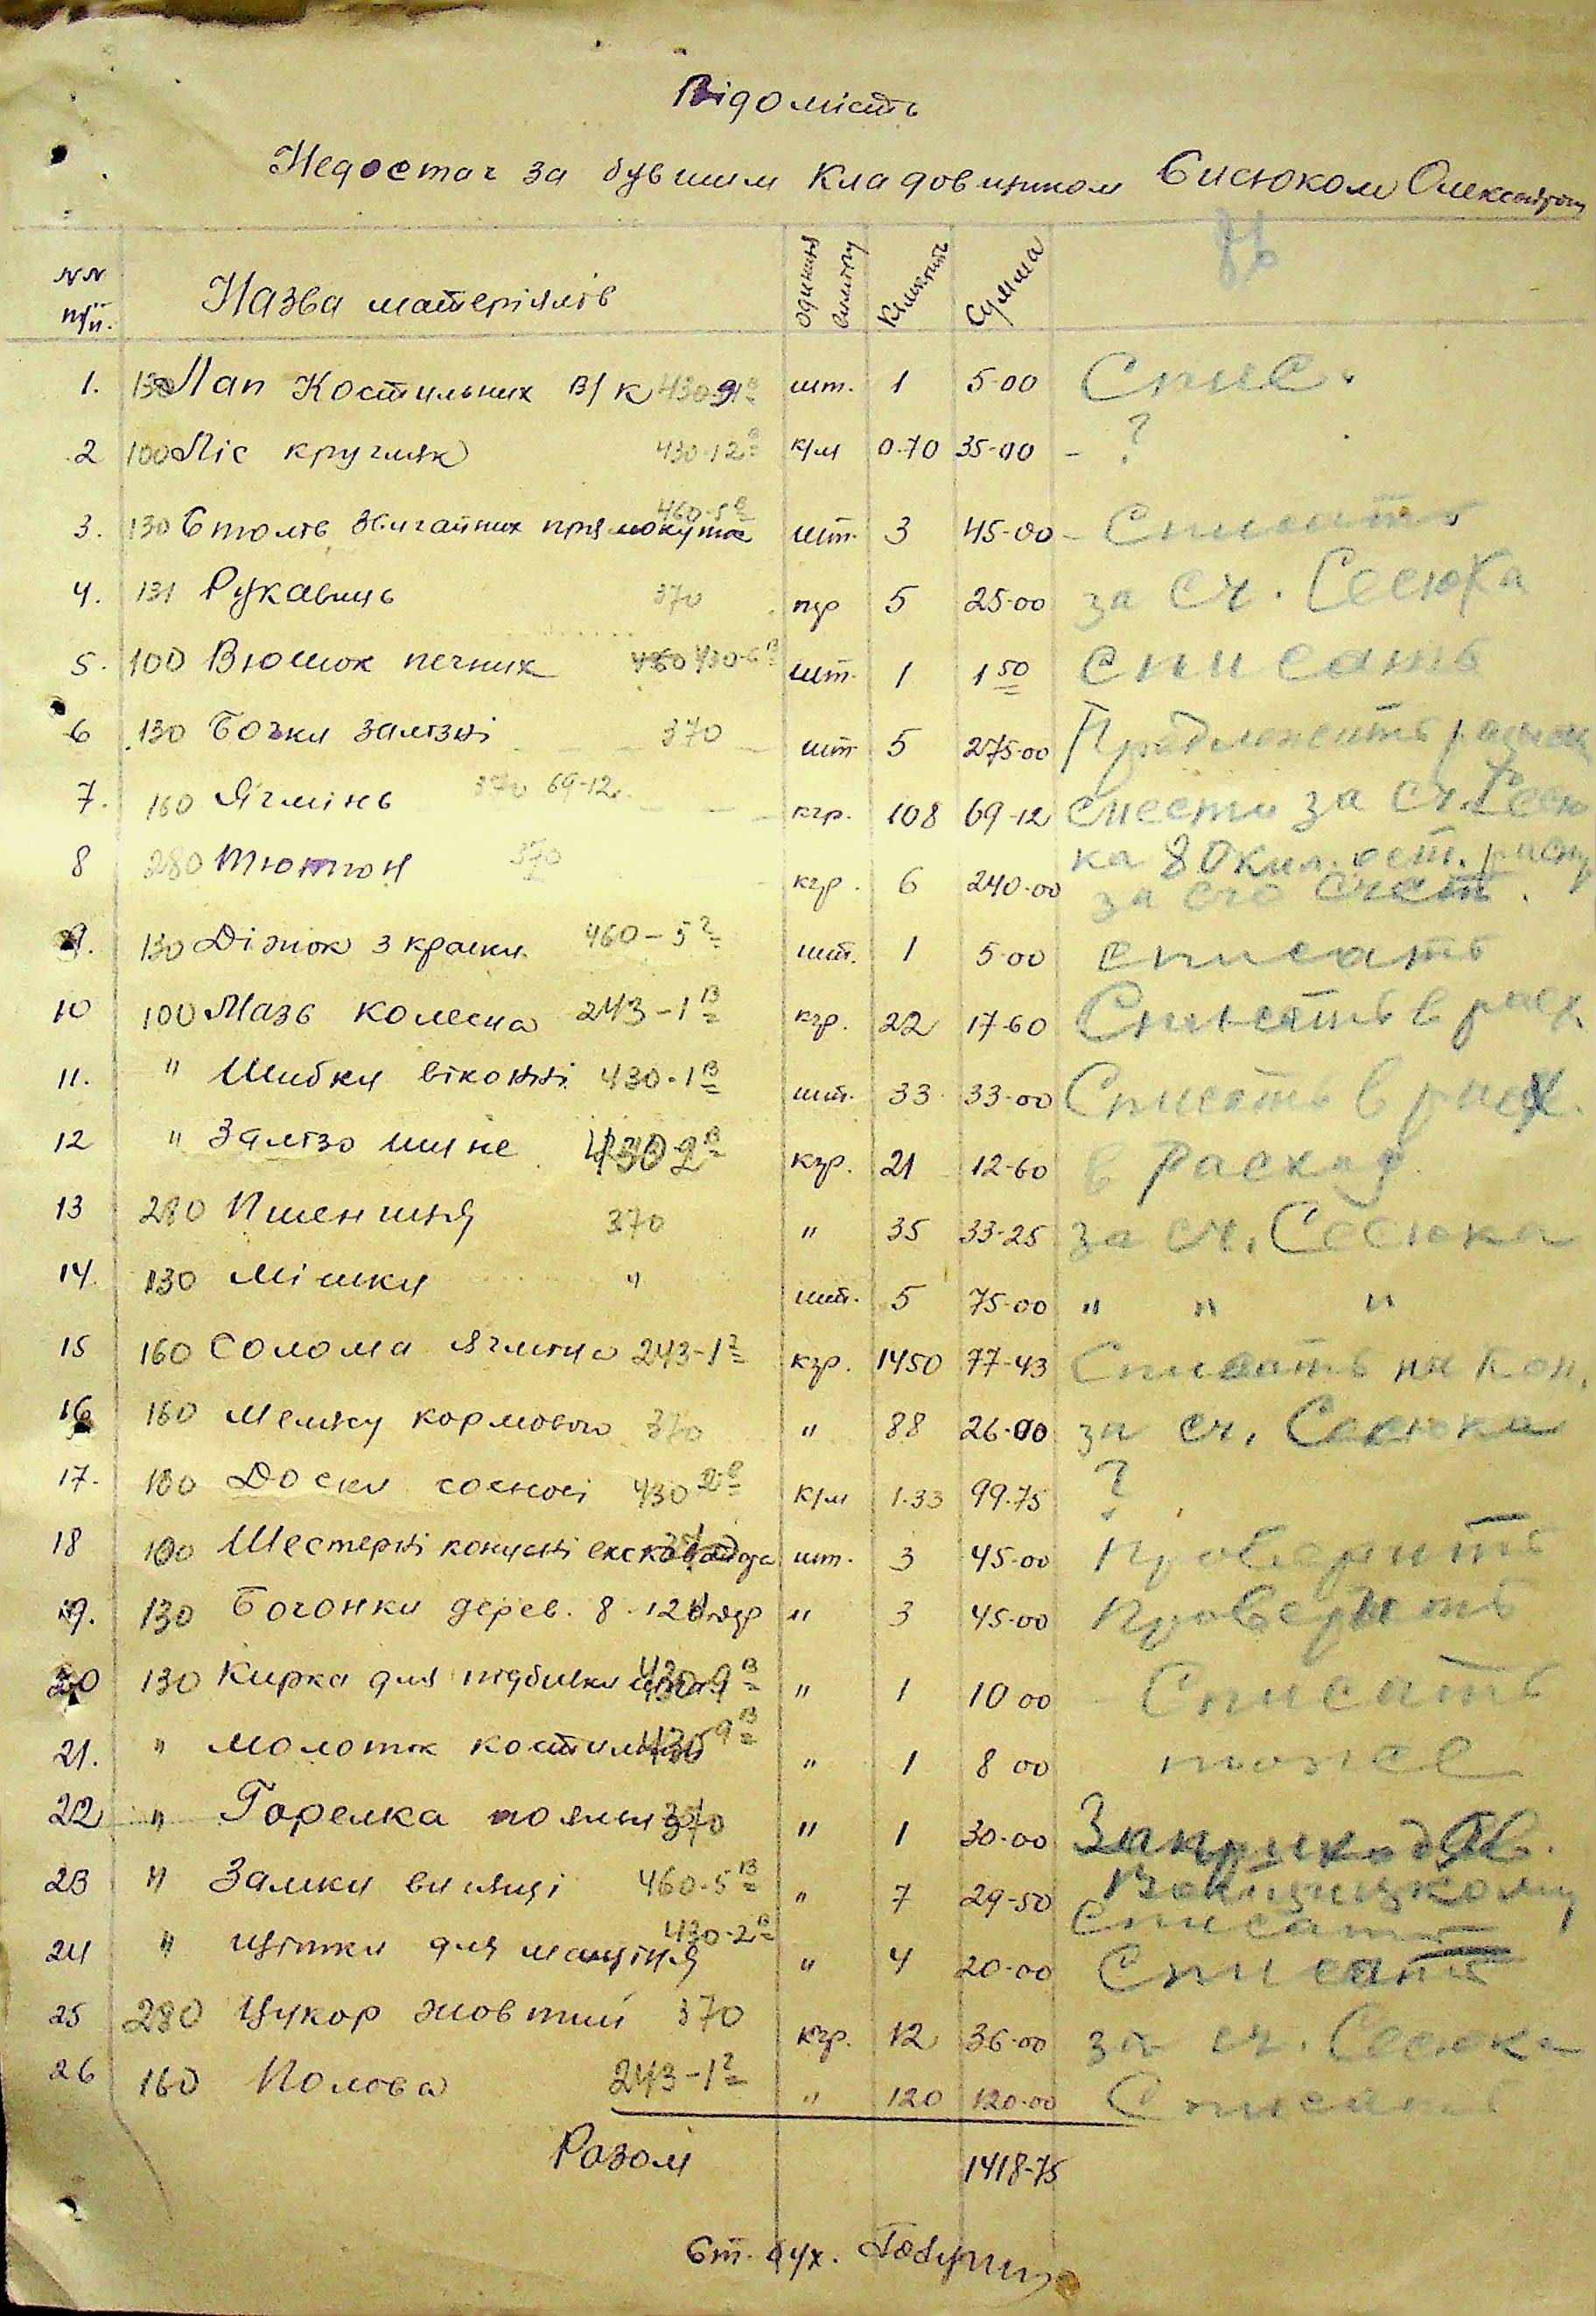 Відомість
Недостач за бувшим кладовщиком Сисюком Олександром
NN п/п. Назва матеріялів одиниця виміру Кількість Сумма
1. 130 Лап Костильних В/К 430-9в шт. 1 5-00 Спис.
2 100 Ліс кругляк 430-12в к/м 0.70 35-00 - ?
3. 130 Столів звичайних прямокутн 460-5в шт. 3 45-00 - Списать
4. 131 Рукавиць 370 пар 5 25-00 за сч. Сесюка
5. 100 Вюшок печних 430-6в шт. 1 1 50 списать
6 130 Бочки залізні 370 шт 5 275-00 Предложить
7. 160 Ячмінь 370 69-12. кгр. 108 69-12 снести за сч. Сесю
8 280 Тютюн 370 кгр. 6 240-00 ка 80 кил. ост.
за его счет.
9. 130 Діжок з краски 460-5г шт. 1 5-00 списать
10 100 Мазь колесна 243-1в кгр. 22 17-60 Списать в расх.
11. " Шибки віконні 430-1в шт. 33 33-00 Списать в расх.
12 " Залізо шине 430-2в кгр. 21 12-60 в расход
13 280 Пшениця 370 " 35 33-25 за сч. Сесюка
14. 130 Мішки " шт. 5 75-00 " " "
15 160 Солома ячмінна 243-1г кгр. 1450 77-43 Списать на кон.
16 160 Мелясу кормового 370 " 88 26-00 за сч. Сесюка
17. 100 Доски соснові 430 к/м 1.33 99.75 ?
18 100 Шестерні конусні шт. 3 45-00 Проверить
19. 130 Бочонки дерев. 8-12 " 3 45-00 Проверить
20 130 Кирка для підбивки 430-9в " 1 10 00 Списать
21. " молоток костильний 430-9в " 1 8 00 тоже
22 " Горелка 370 " 1 30-00
23 " Замки висячі 460-5в " 7 29-50
Списать
24 " щітки для 430-2в " 4 20-00 Списать
25 280 Цукор жовтий 370 кгр. 12 36-00 за сч. Сесюка
26 160 Полова 243-1г " 120 120-00 Списать
Разом 1418-75
Ст. бух.